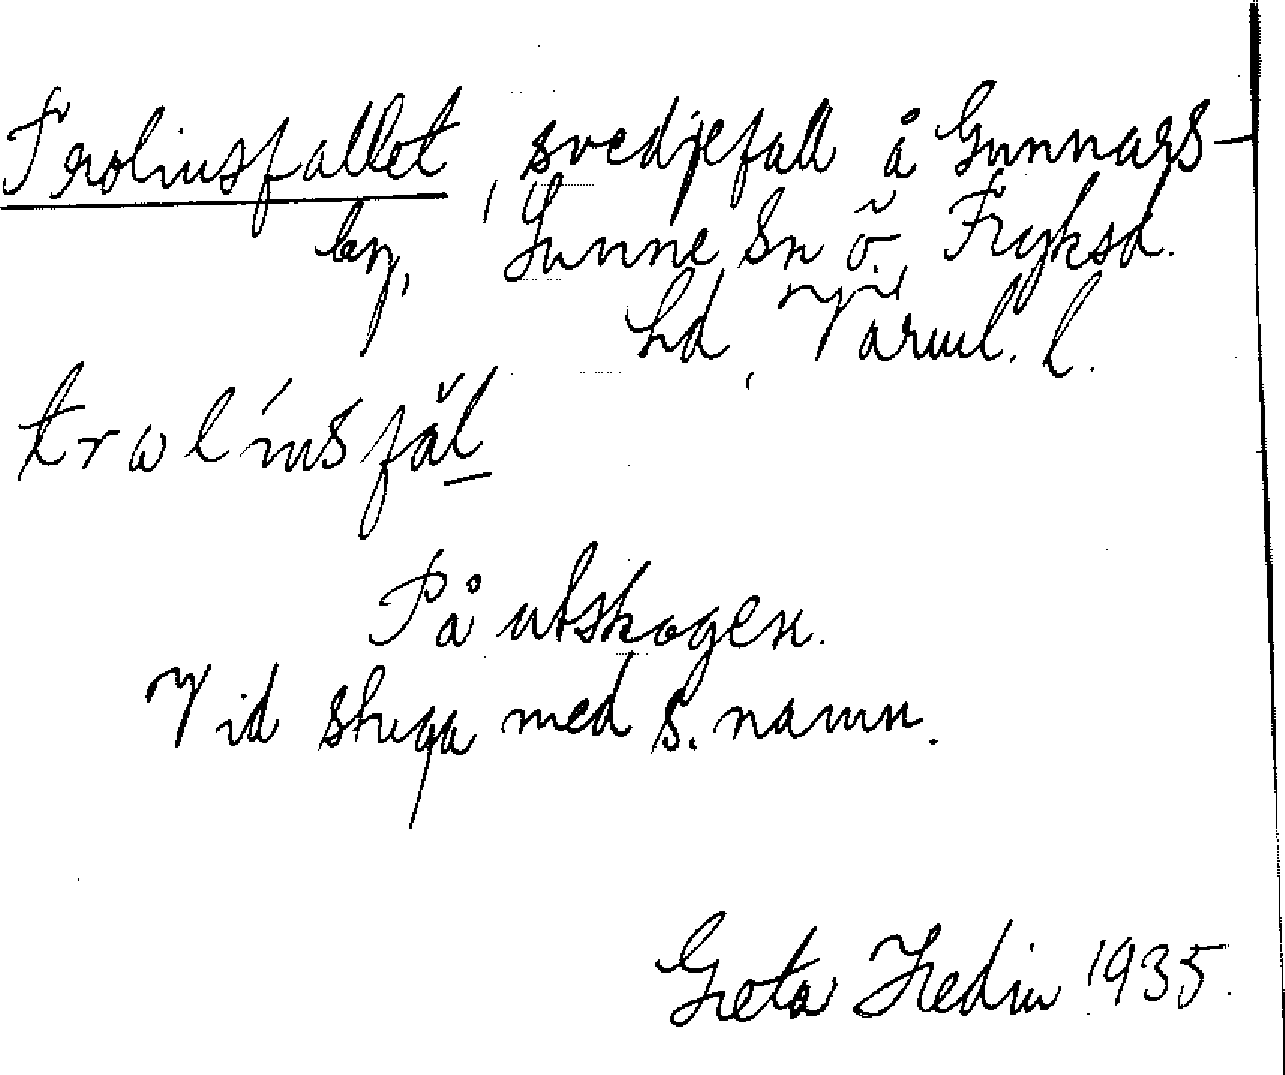 Troliusfallet, svedjefall å Gunnars-
by, Sunne Sn Ö. Fryksd.
hd, Värml. l.
trωlíusfăl
På utskogen.
Vid stuga med s. namn.
Greta Hedin 1935.